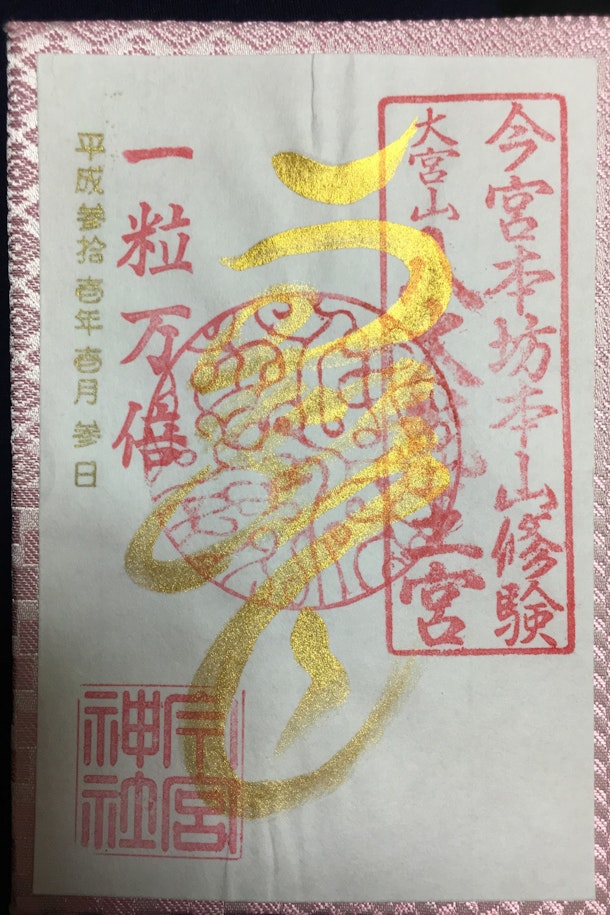 今宮本坊本山修験
大宮山八大龍王宮
一粒万倍
平成参拾壱年壱月参日
今宮神社